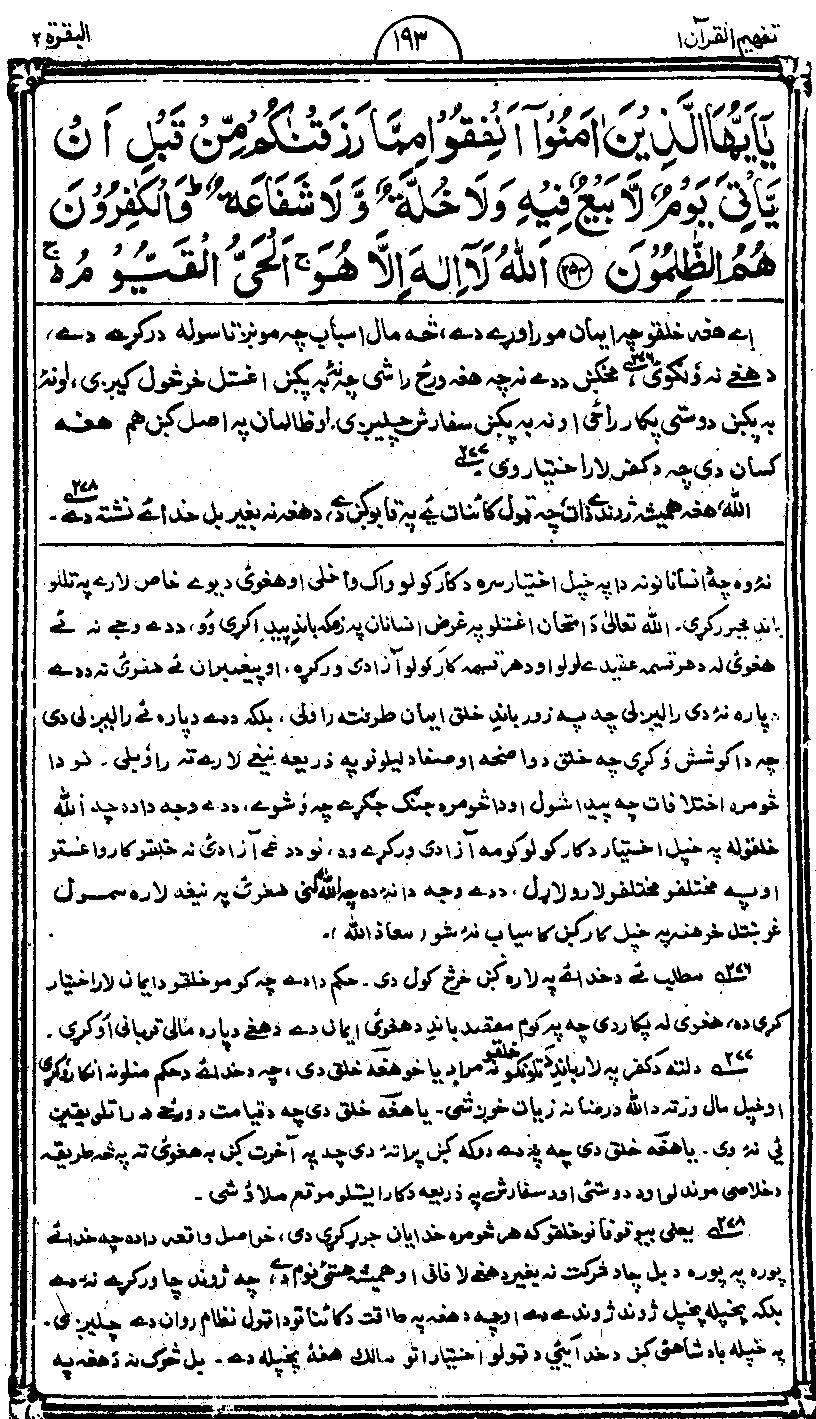 تفهیم القرآن ۱
۱۹۳
البقرة ۲
يٰۤاَيُّهَا الَّذِيْنَ اٰمَنُوْۤا اَنْفِقُوْا مِمَّا رَزَقْنٰكُمْ مِّنْ قَبْلِ اَنْ
يَّاْتِيَ يَوْمٌ لَّا بَيْعٌ فِيْهِ وَلَا خُلَّةٌ وَّلَا شَفَاعَةٌ ؕ وَالْكٰفِرُوْنَ
هُمُ الظّٰلِمُوْنَ ﴿۲۵۴﴾ اَللّٰهُ لَاۤ اِلٰهَ اِلَّا هُوَ ۚ اَلْحَيُّ الْقَيُّوْمُ ۬ۚ
اے هغه خلقو چه ایمان مو راوړے دے، څه مال اسباب چه مونږ تاسو له درکړے دے،
د هغے نه ولګوئ ۲۷۶، مخکښ ددے نه چه هغه ورځ راشی چه نۀ به پکښ اغستل خرڅول کیږی، او نۀ
به پکښ دوستی پکار راځی او نه به پکښ سفارش چلیږی. او ظالمان په اصل کښ هم هغه
کسان دی چه د کفر لار اختیاروی ۲۷۷۔
الله، هغه همیشه ژوندے ذات، چه ټول کائنات ئے په قابو کښ دی، د هغه نه بغیر بل خدائے نشته دے۔ ۲۷۸
نۀ وه چه انسانانو نه دا په خپل اختیار سره د کار کولو واک واخلی او هغوئ د یوے خاص لارے په تللو
باندِ مجبور کړی۔ الله تعالیٰ د امتحان اغستلو په غرض انسانان په زمکه باندِ پیدا کړی وو، ددے وجے نه ئے
هغوئ له د هر قسمه عقیدے لرلو او د هر قسمه کار کولو آزادی ورکړه، او پیغمبران ئے هغوئ ته ددے
دپاره نۀ دی رالیږلی چه په زور باندِ خلق ایمان طرف ته راولی، بلکه ددے دپاره ئے رالیږلی دی
چه دا کوشش وکړی چه خلق د واضحه او صفا دلیلونو په ذریعه نیغے لارے ته راوبلی۔ نو دا
څومره اختلافات چه پیدا شول او دا څومره جنګ جګړے چه وشوے، ددے وجه داده چه الله
خلقو له په خپل اختیار د کار کولو کومه آزادی ورکړے وه، نو د دغے آزادئ نه خلقو کار واغستو
او په مختلفو مختلفو لارو لاړل، ددے وجه دا نۀ ده چه الله ګنی هغوئ په نیغه لاره سمول
غوښتل خو هغه په خپل کار کښ کامیاب نۀ شو (معاذ الله)۔
۲۷۶ مطلب ئے د خدائے په لاره کښ خرڅ کول دی۔ حکم دا دے چه کومو خلقو د ایمان لار اختیار
کړی ده، هغوئ له پکار دی چه په کوم مقصد باندِ د هغوئ ایمان دے د هغے دپاره مالی قربانی اوکړی۔
۲۷۷ دلته د کفر په لار باندِ د تلونکو خلقو نه مراد یا خو هغه خلق دی، چه د خدائے د حکم منلو نه انکار وکړی
او خپل مال ورته د الله د رضا نه زیات خوښ شی۔ یا هغه خلق دی چه د قیامت د ورځے د راتلو یقین
ئے نۀ وی۔ یا هغه خلق دی چه په دے دوکه کښ پراته دی چه په آخرت کښ به هغوئ ته په څه طریقه
د خلاصی موندلو او د دوستئ او د سفارش په ذریعه د کار ایستلو موقع ملاؤ شی۔
۲۷۸ یعنی بیوقوفانو خلقو که هر څومره خدایان جوړ کړی دی، خو اصل واقعه داده چه خدائے
پوره په پوره د بل چا د شرکت نه بغیر د هغے لافانی او همیشه هستئ نوم دے، چه ژوند چا ورکړے نۀ دے
بلکه پخپله پخپل ژوند ژوندے دے او چه د هغه په طاقت د کائناتو دا ټول نظام روان دے چلیږی۔
په خپله بادشاهئ کښ د خدائیئ د ټولو اختیاراتو مالک هغۀ پخپله دے۔ بل څوک نه د هغه په